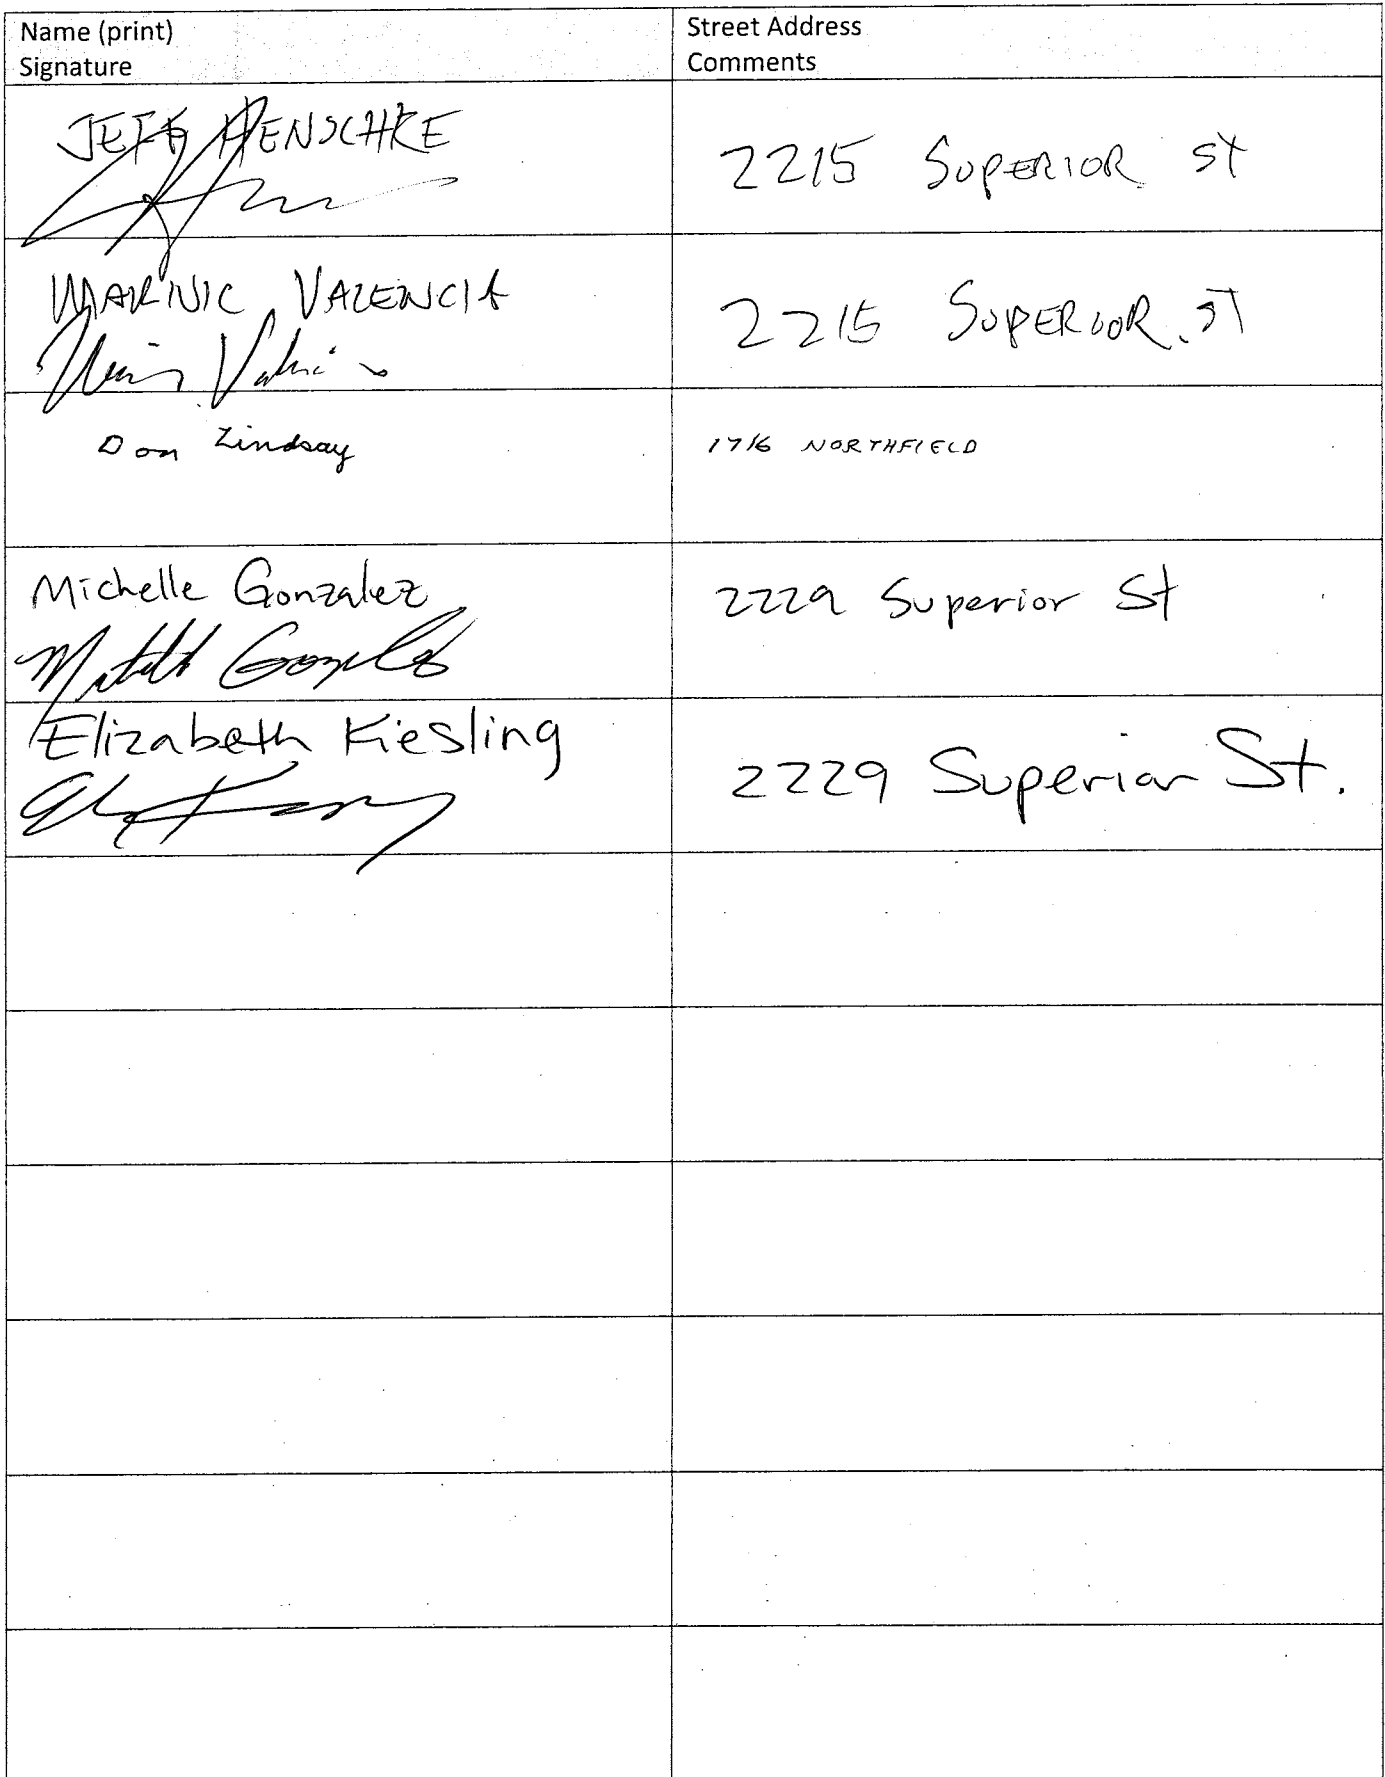 Name (print)
Signature
Street Address
Comments
JEFF HENSCHKE
2215 SUPERIOR St
MARINIC VALENCIA
2215 SUPERIOR. ST
Don Lindsay
1716 NORTHFIELD
Michelle Gonzalez
2229 Superior St
Elizabeth Kiesling
2229 Superior St.